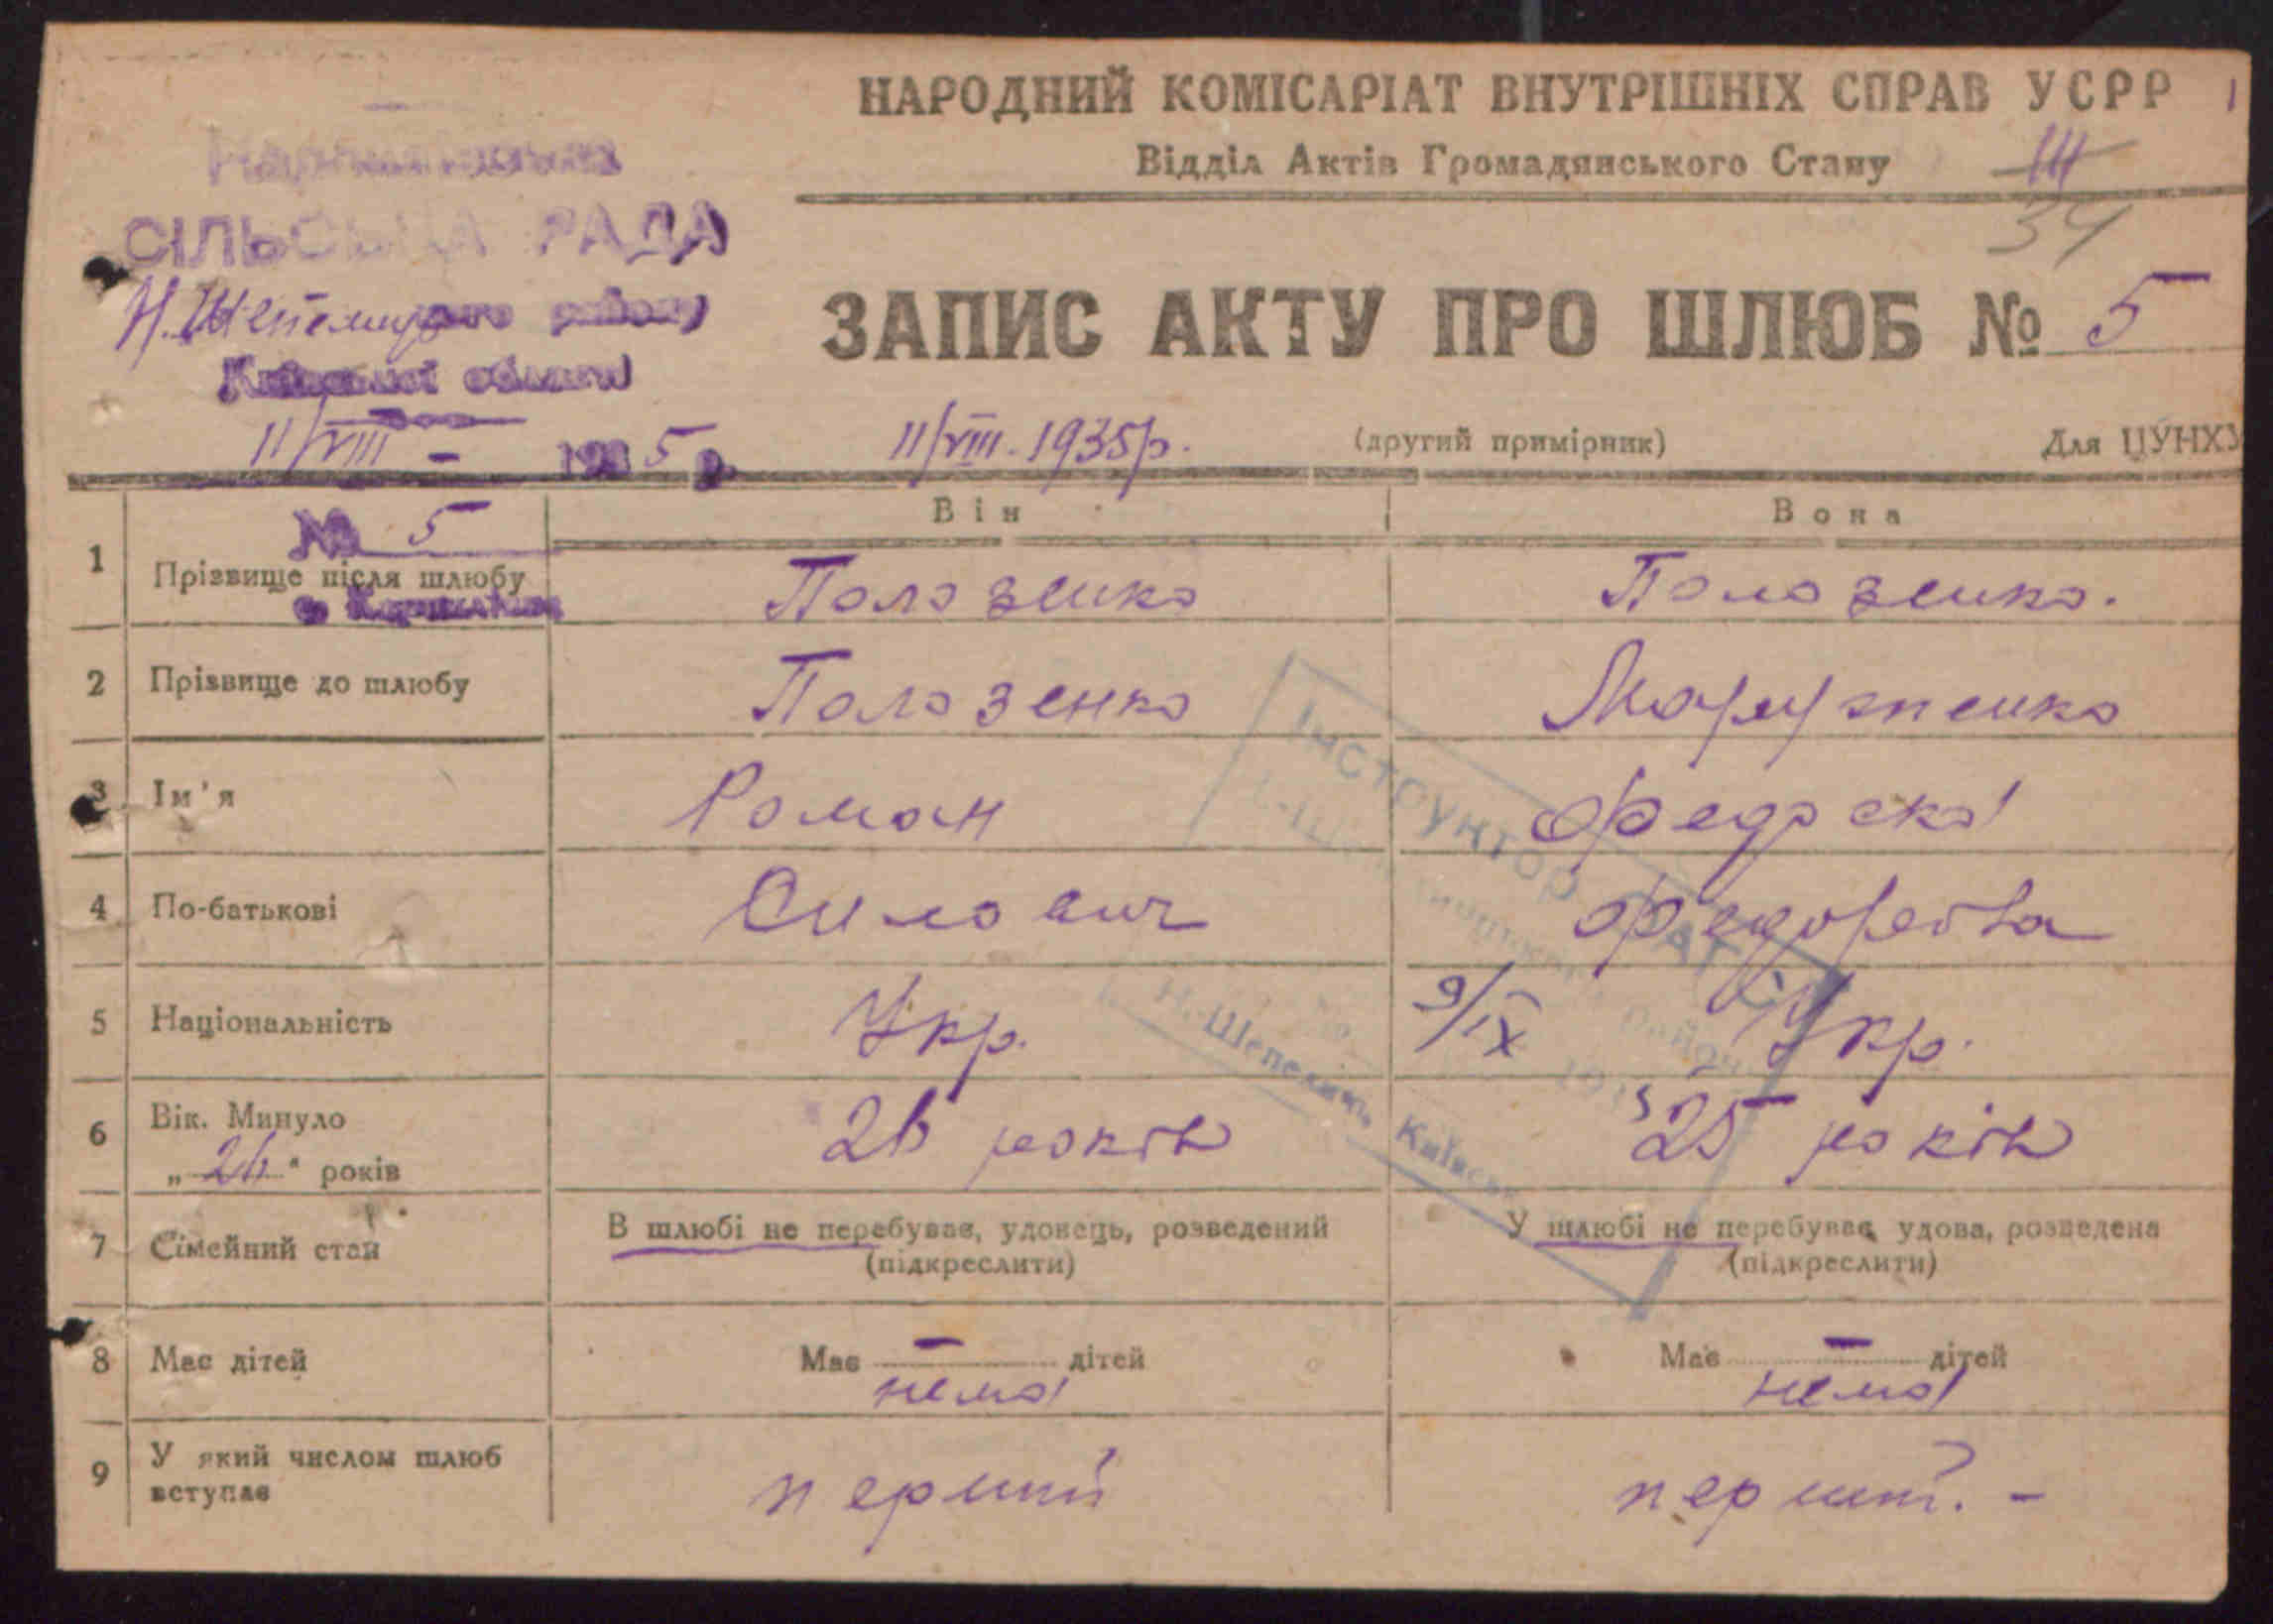 НАРОДНИЙ КОМІСАРІАТ ВНУТРІШНІХ СПРАВ УСРР
Відділ Актів Громадянського Стану
34
СІЛЬСЬКА РАДА
Н. Шепелицького району
Київської области
ЗАПИС АКТУ ПРО ШЛЮБ № 5
11/VIII - 1935 р.
11/VIII. 1935р.
(другий примірник)
Для ЦУНХУ
№ 5
Він
Вона
1 Прізвище після шлюбу
Полозенко
Полозенко.
2 Прізвище до шлюбу
Полозенко
3 Ім'я
Роман
Федоска
4 По-батькові
Силович
Федоровна
5 Національність
Укр.
Укр.
9/IX
6 Вік. Минуло
„ 26 " років
26 років
25 років
7 Сімейний стан
В шлюбі не перебуває, удовець, розведений
(підкреслити)
У шлюбі не перебуває, удова, розведена
(підкреслити)
8 Має дітей
Має — дітей
нема
Має — дітей
нема
9 У який числом шлюб
вступає
перший
перший. -
Інструктор ЗАГС
Н.-Шепеличі, Київськ